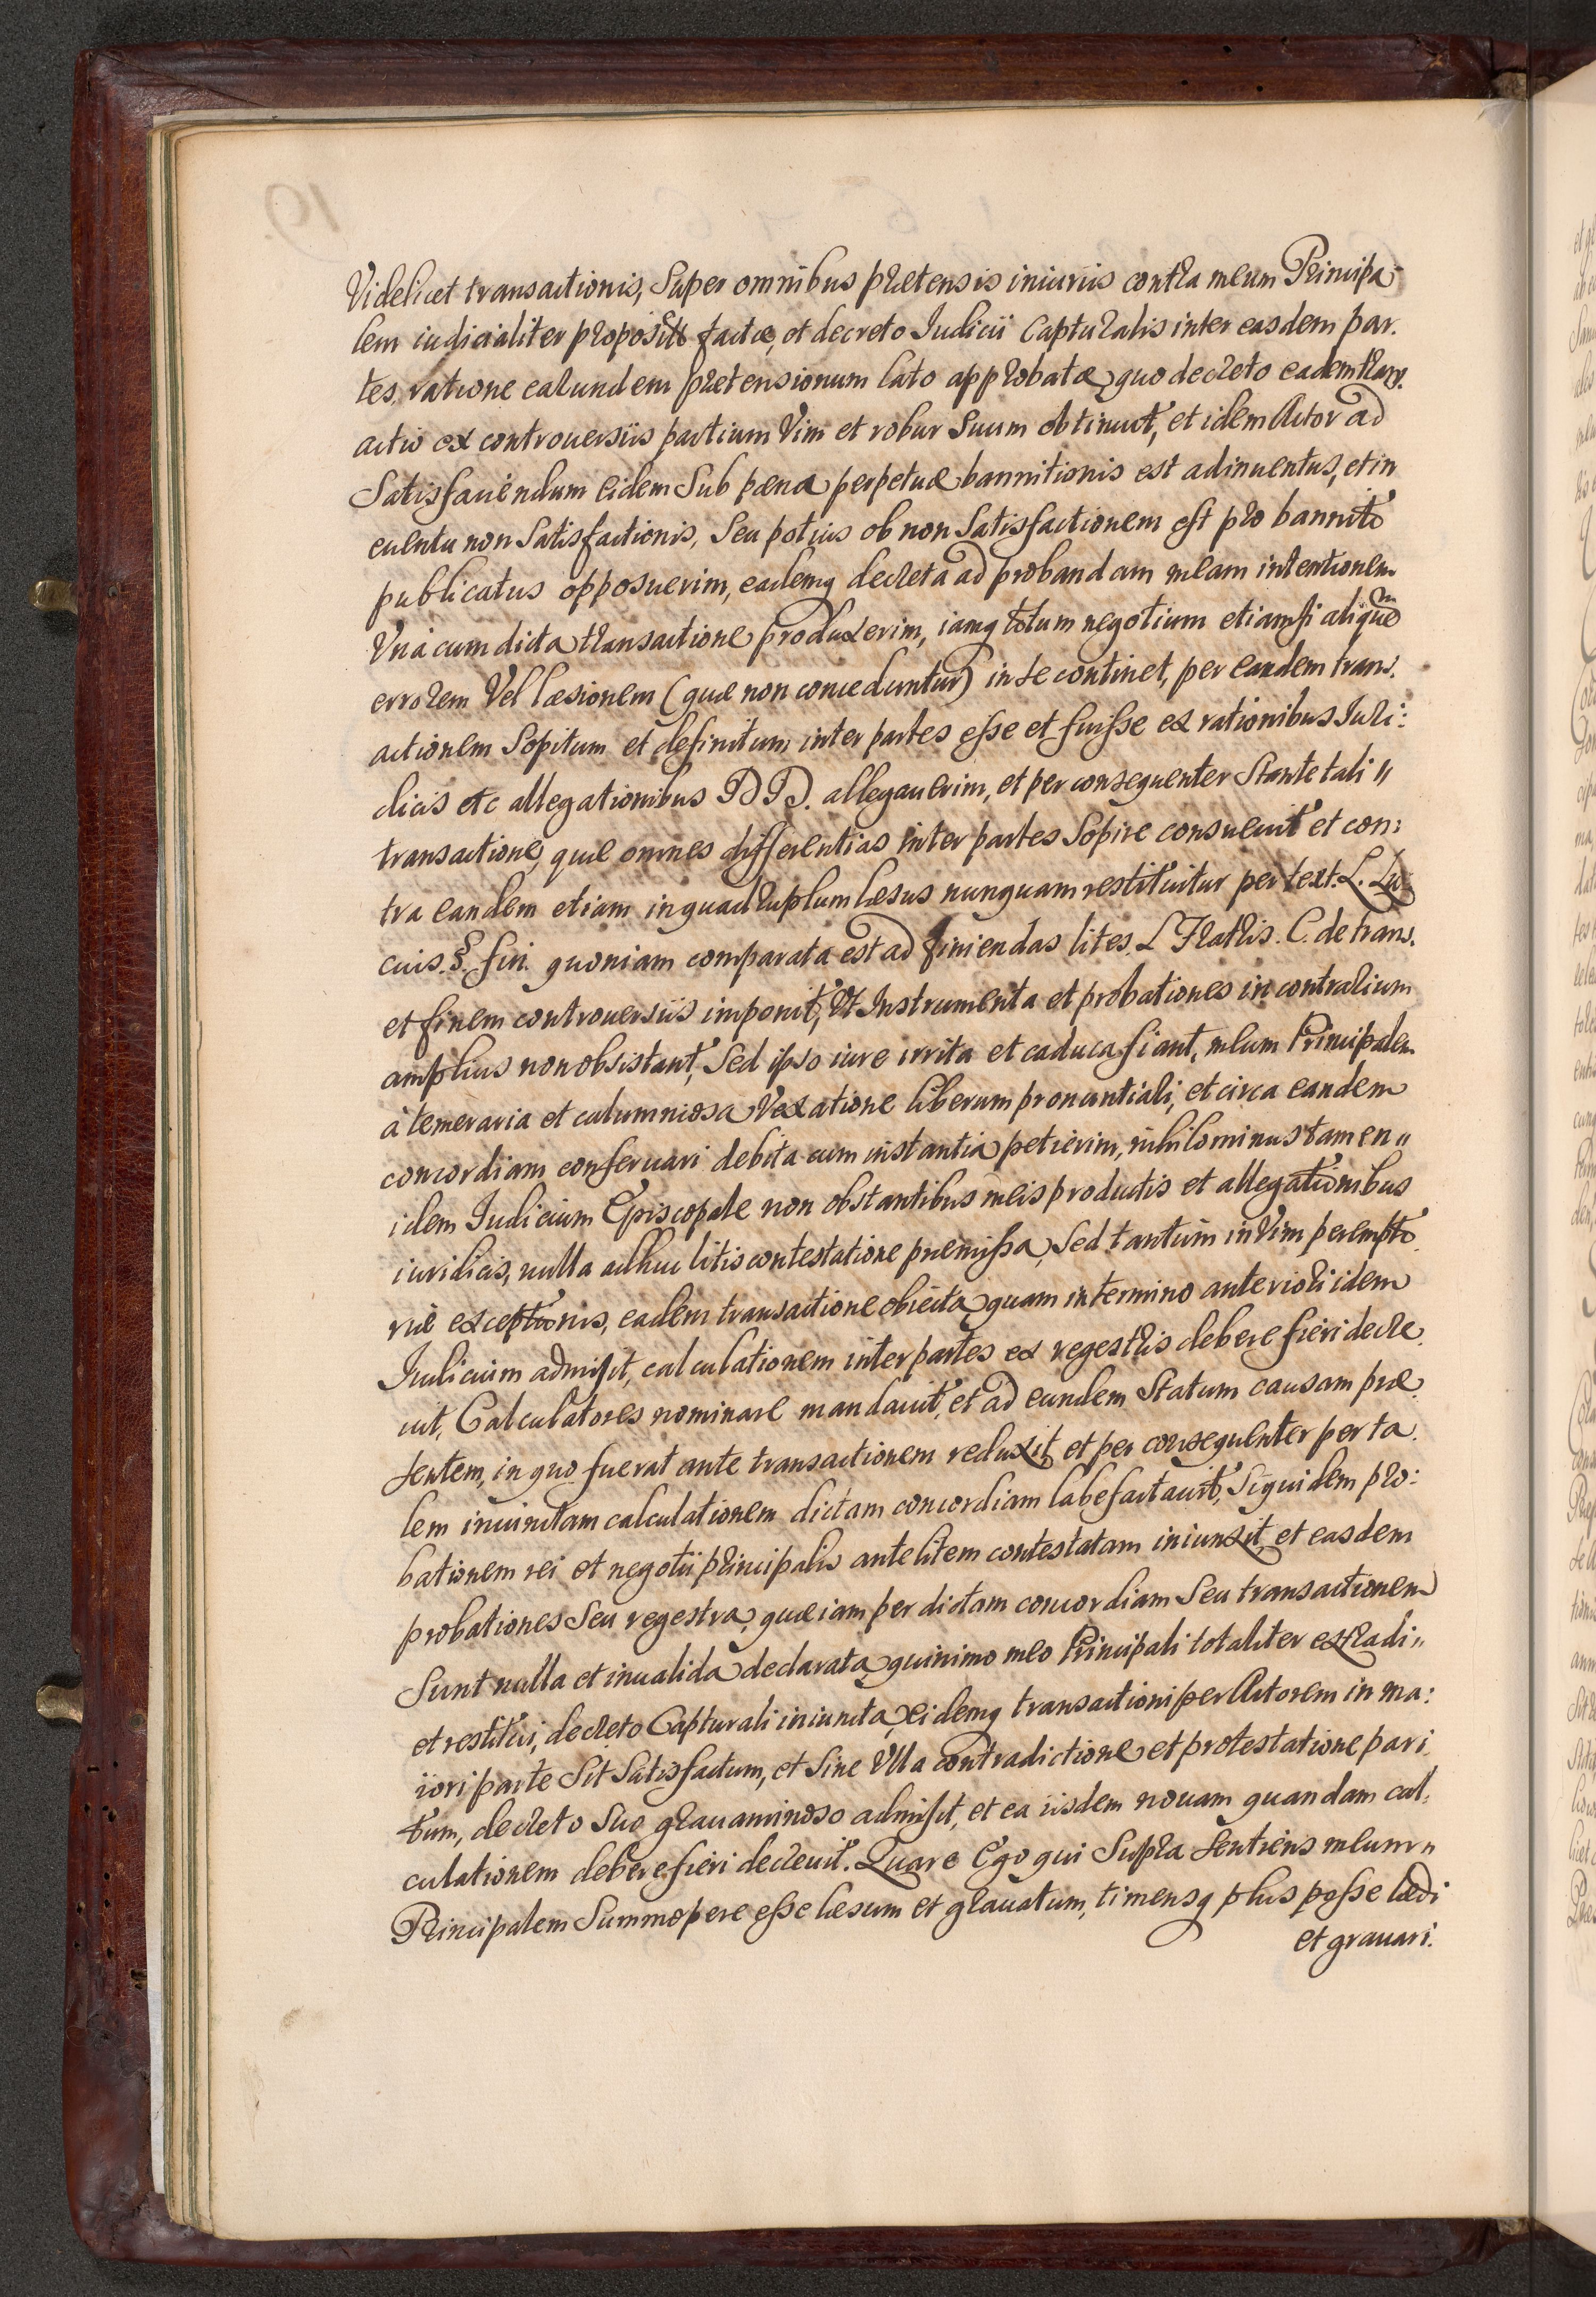 Videlicet transactionis, Super omnibus prætensis iniuriis contra meum Principa
lem iudicialiter propositis factæ, et decreto Iudicii Capturalis inter easdem par.
tes, ratione earundem prætensionum lato approbatæ, quo decreto eadem trans.
actio ex controuersiis partium Vim et robur Suum obtinuit, et idem Actor ad
Satisfaciendum eidem Sub pœna perpetuæ bannitionis est adinuentus, et in
euentu non Satisfactionis, Seu potius ob non Satisfactionem est pro bannito
publicatus opposuerim, eademq decreta ad probandam meam intentionem
Vná cum dicta transactione produxerim, iamq totum negotium etiamsi aliquem
errorem Vel læsionem (quæ non conceduntur) in se continet, per eandem trans.
actionem Sopitum et definitum inter partes esse et fuisse ex rationibus Iuri:
dicis etc allegationibus DD. allegauerim, et per consequenter Stante tali "
transactione, quæ omnes differentias inter partes Sopire consueuit et con:
tra eandem etiam in quadruplum læsus nunquam restituitur per text. L. Lu
cius. §. fin. quoniam comparata est ad finiendas lites. L Fratris. C. de trans.
et finem controuersiis imponit, Vt Instrumenta et probationes in contrarium
amplius non obsistant, Sed ipso iure irrita et caduca fiant, meum Principalem
à temeraria et calumniosa Vexatione liberum pronuntiari, et circa eandem
concordiam conseruari debita cum instantia petierim, nihilominus tamen "
idem Iudicium Episcopale non obstantibus meis productis et allegationibus
iuridicis, nulla adhuc litis contestatione præmissa, Sed tantum in Vim perempto
riæ exceptionis, eadem transactione obiecta, quam in termino anteriori idem
Iudicium admisit, calculationem inter partes ex regestris debere fieri decre
uit, Calculatores nominare mandauit, et ad eundem Statum causam præ
sentem, in quo fuerat ante transactionem reduxit, et per consequenter per ta.
lem iniunctam calculationem dictam concordiam labefactauit, Siquidem pro:
bationem rei et negotii principalis ante litem contestatam iniunxit, et easdem
probationes Seu regestra, quæ iam per dictam concordiam Seu transactionem
Sunt nulla et inualida declarata, quinimo meo Principali totaliter extradi "
et restitui, decreto Capturali iniuncta, eidemq transactioni per Actorem in ma:
iori parte Sit Satisfactum, et Sine Vlla contradictione et protestatione pari
tum, decreto Suo grauaminoso admisit, et ea iisdem nouam quandam cal:
culationem debere fieri decreuit. Quare Ego qui Supra Sentiens meum "
Principalem Summopere esse læsum et grauatum, timensq plus posse lædi
et grauari.